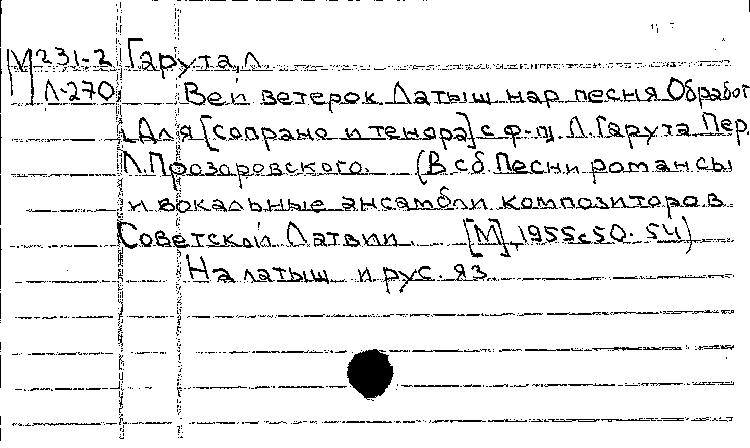 М231-2 Гарута, Л.
Л-270 Вей ветерок Латыш нар песня Обработ
Для [сопрано и тенора] с ф-п. Л. Гарута Пер.
Л. Прозоровского. (В сб Песни романсы
и вокальные ансамбли композиторов
Советской Латвии. [М], 1955 с 50-54)
На латыш и рус. яз